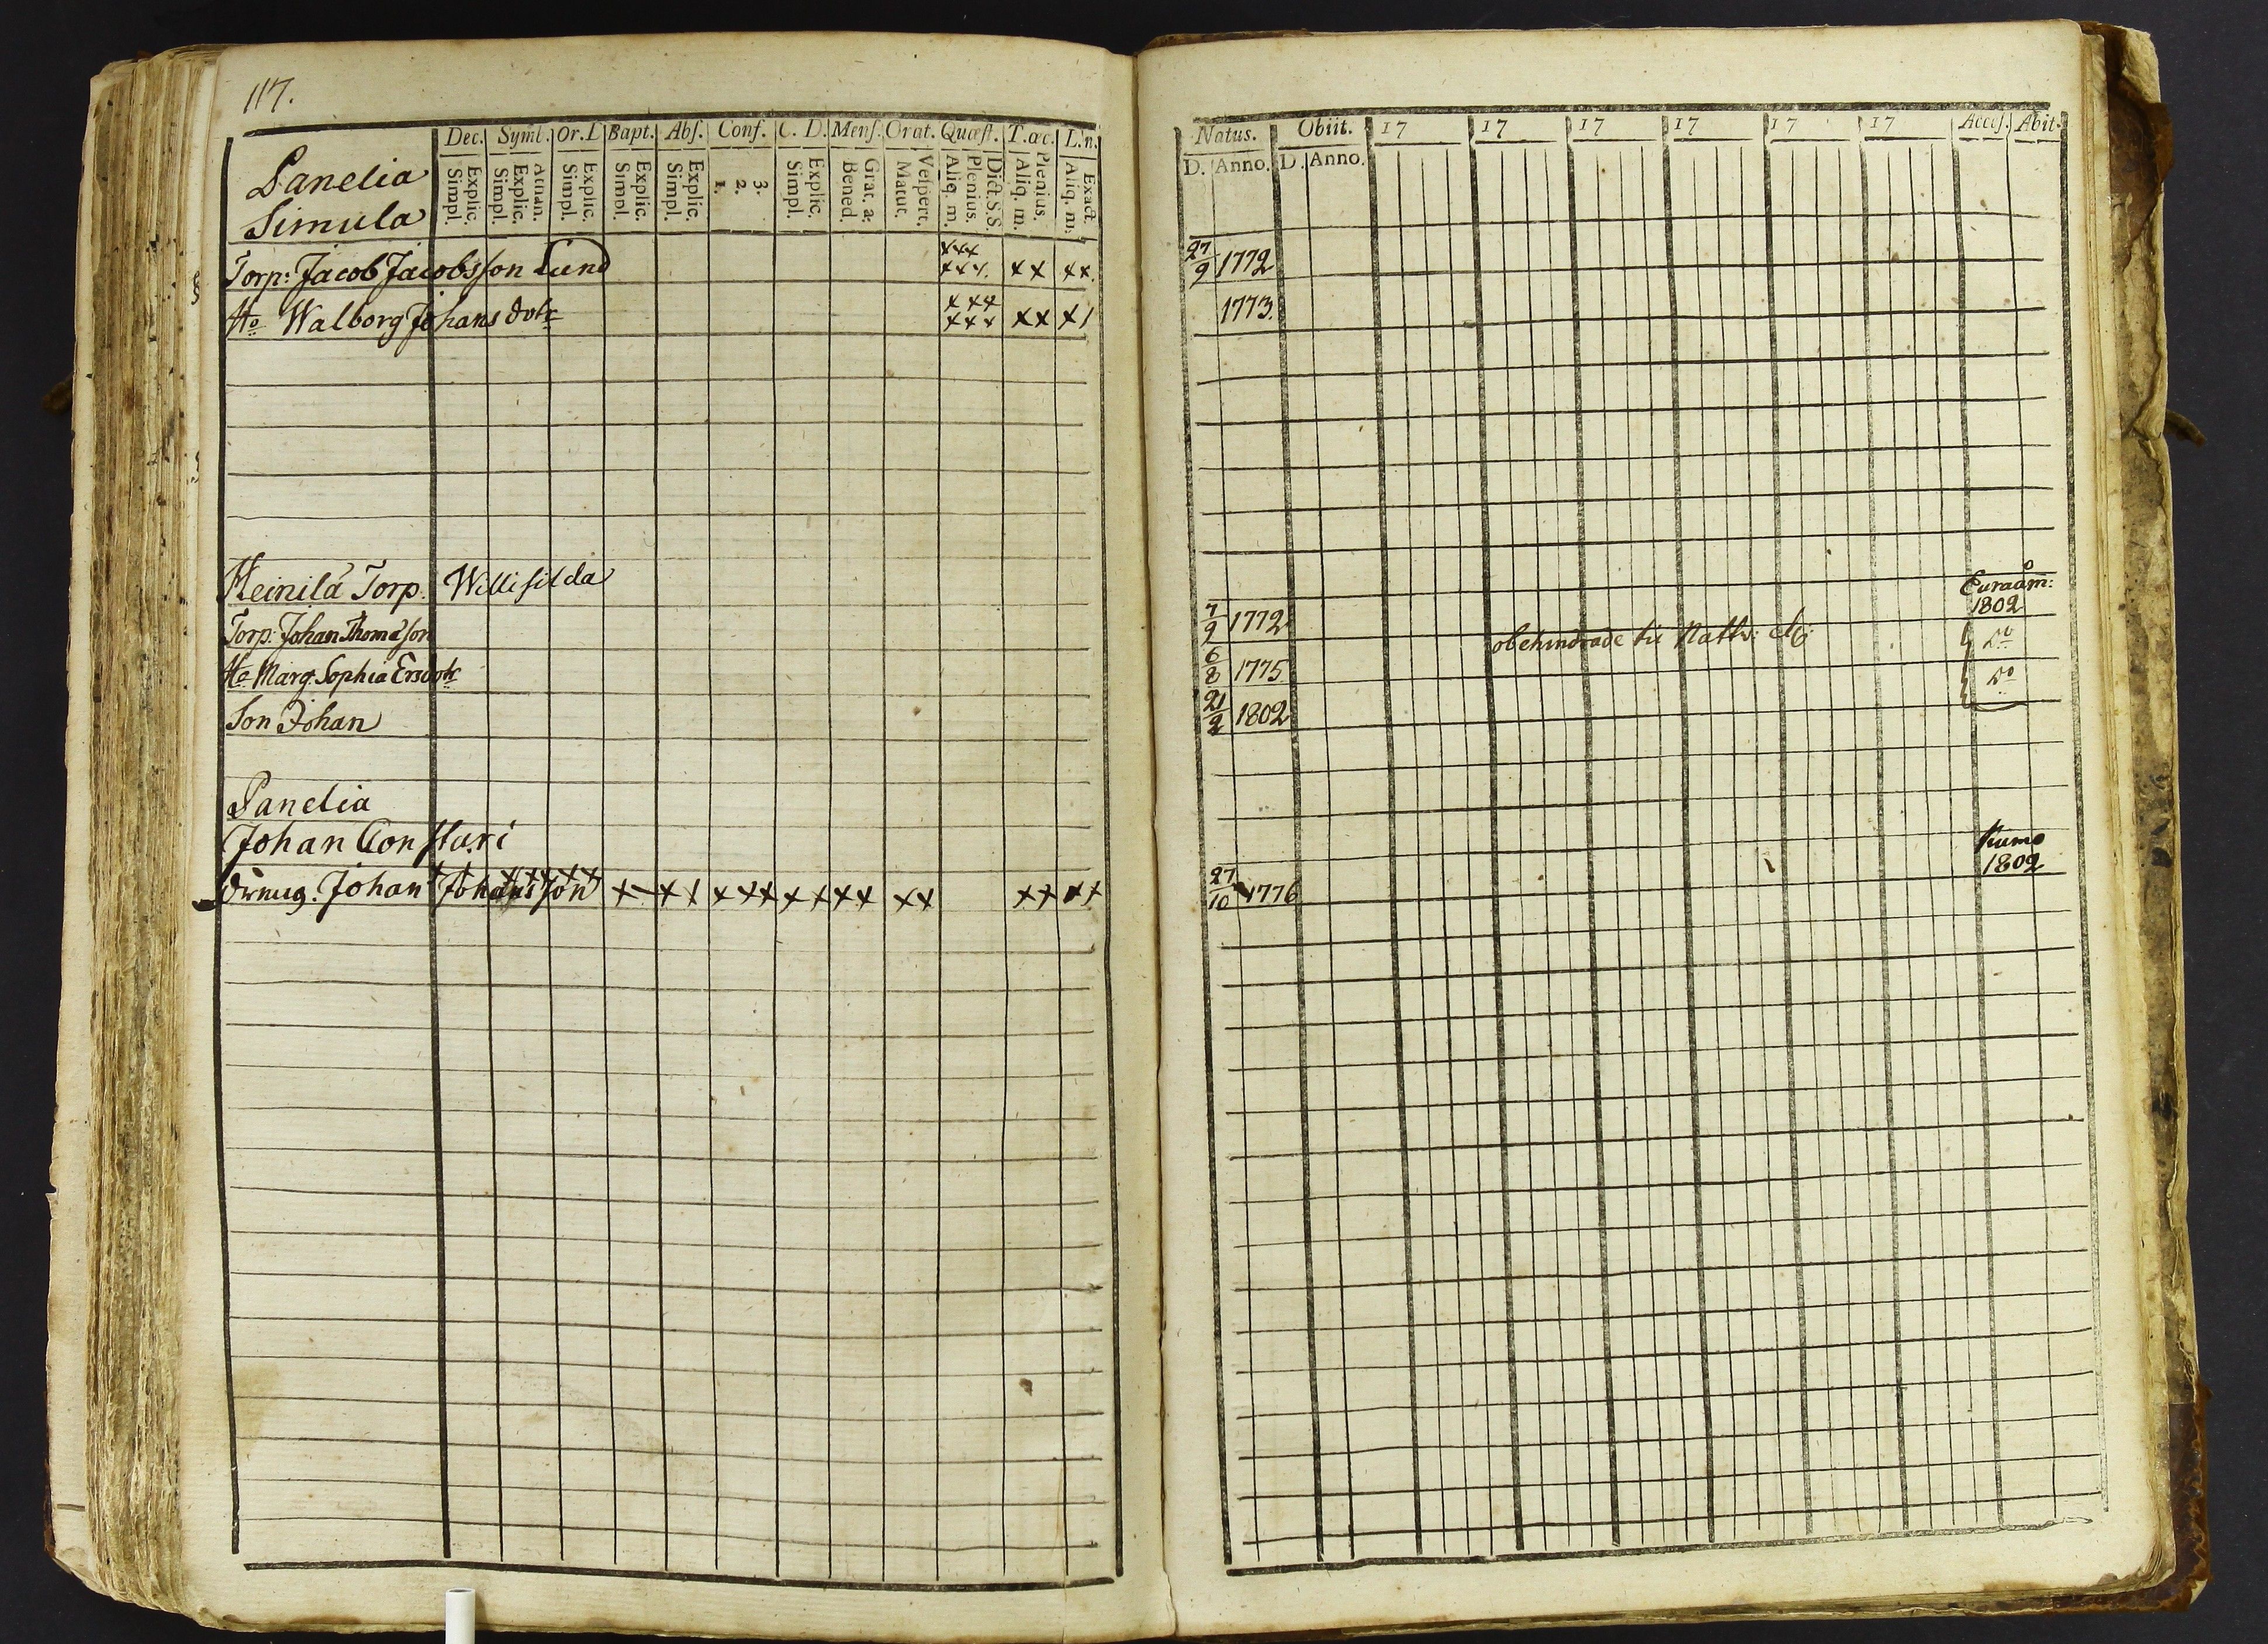 117.
Dec. Symb. Or. D Bapt. Abs. Conf. C. D. Mens. Orat. Quæst. T. œc. L. n.
Explic. Simpl. Athan. Explic. Simpl. Explic. Simpl. Explic. Simpl. Explic. Simpl. 3. 2. 1. Explic. Simpl. Grat. a: Bened. Vespert. Matut. Dict. S.S. Plenius. Aliq. m. Plenius. Aliq. m. Exact. Aliq. m.
Panelia
Simula
Torp: Jacob Jacobsson Lund
xxx
xxx. xx xx.
Ho Walborg Johans dotr
xxx
xxx xx x/
Heinilä Torp. Willisilda
Torp: Johan Thomasson
Ho Marg. Sophia Ersdotr
Son Johan
Panelia
Johan Constari
xx xxx xx
Dreng. Johan Johansson x- xx xxx xx xx xx xx xx
Natus. Obiit. 17 17 17 17 17 17 Access. Abit.
D. Anno. D. Anno.
27/9 1772
1773.
Euraåm:
1802
7/9 1772
obehindrade till Nattv:
Do
6/8 1775
Do
21/2 1802
Kumo
1802
27/10 1776